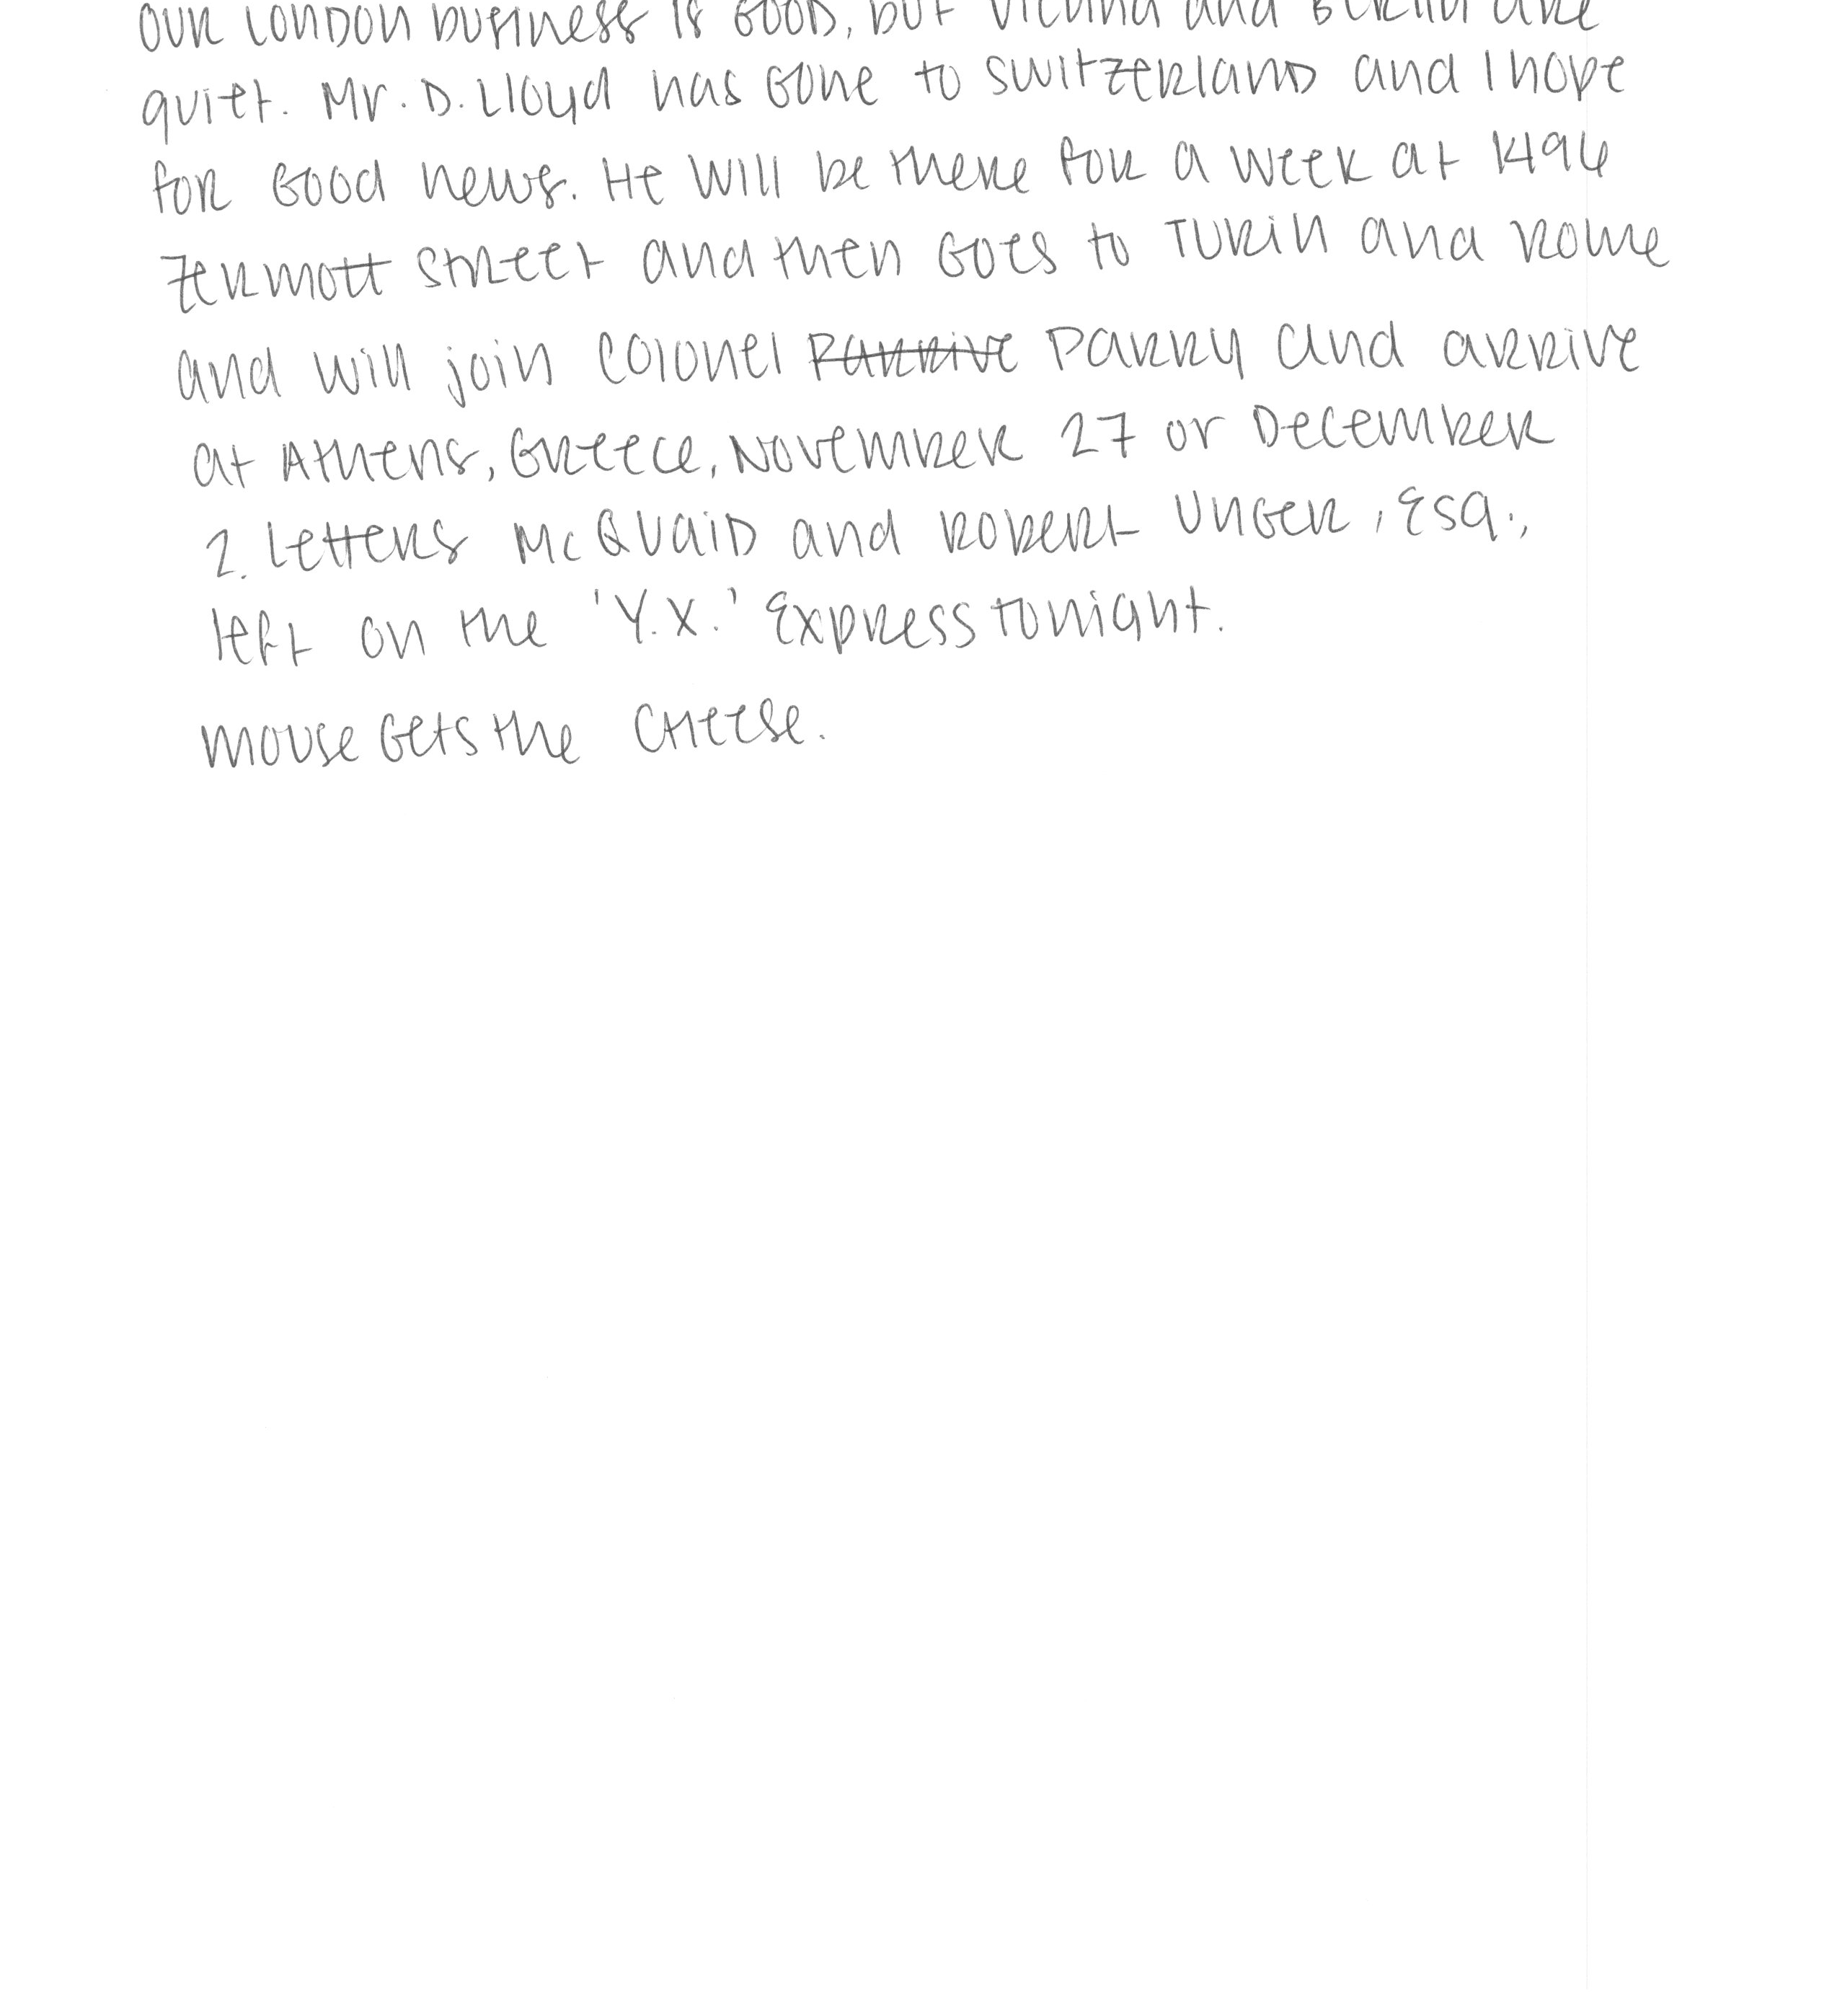 our London business is good, but Vienna and Berlin are
quiet. Mr. D. Lloyd has gone to Switzerland and I hope
for good news. He will be there for a week at 1496
Zermott Street and then goes to Turin and Rome
and will join Colonel Parrive Parry and arrive
at Athens, Greece, November 27 or December
2. Letters McQuaid and Robert Unger, Esq.,
left on the 'Y.X.' Express tonight.
mouse gets the cheese.